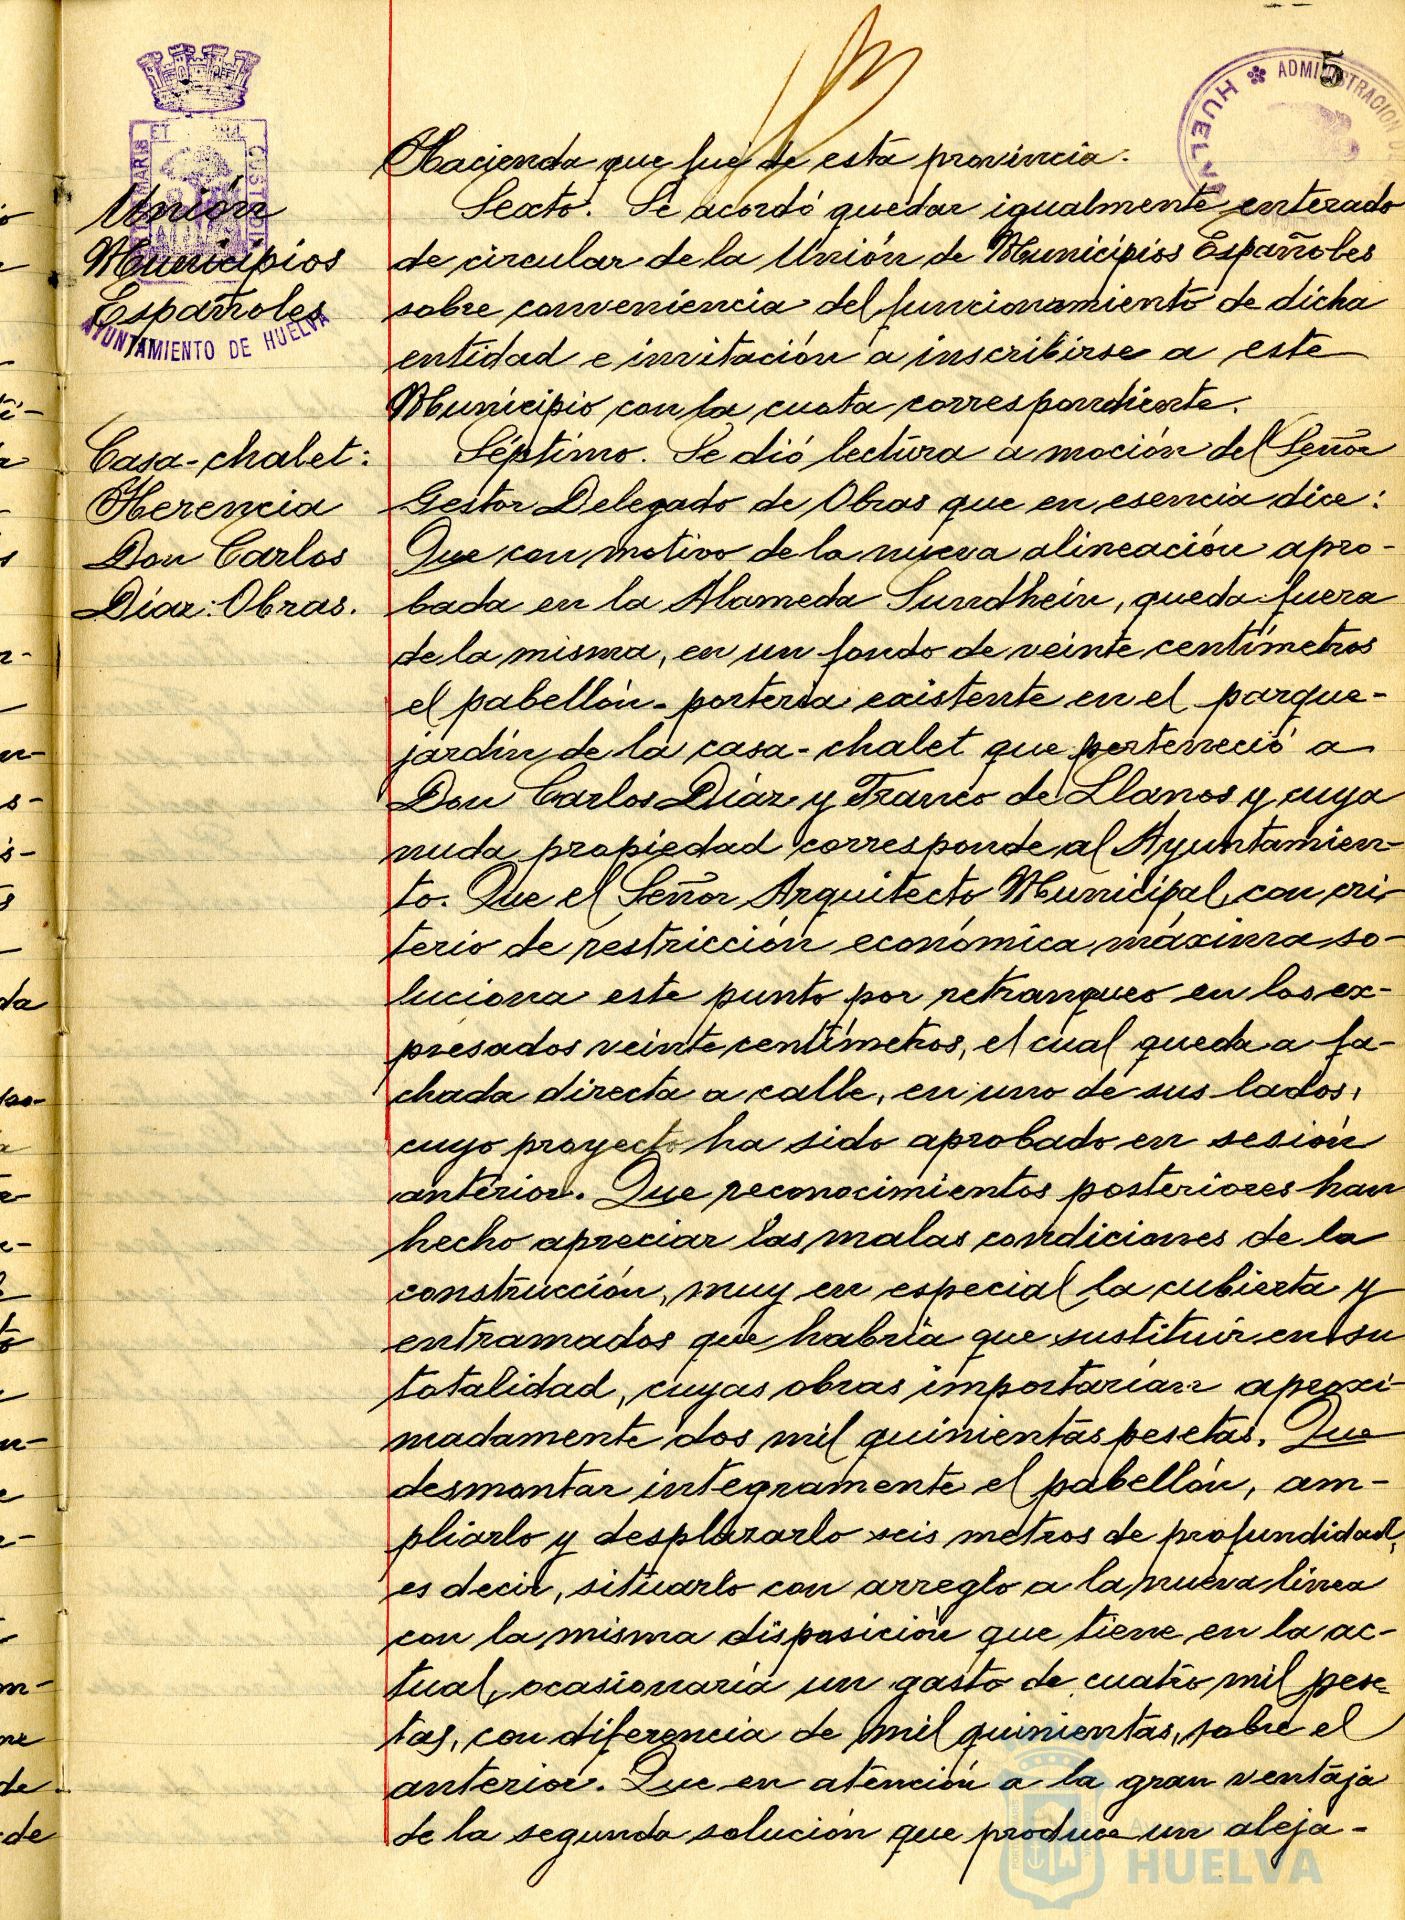 5
ADMINISTRACION
HUELVA
Hacienda que fue de esta provincia.
Unión
Municipios
Españoles
AYUNTAMIENTO DE HUELVA
Sexto. Se acordó quedar igualmente enterado
de circular de la Unión de Municipios Españoles
sobre conveniencia del funcionamiento de dicha
entidad e invitación a inscribirse a este
Municipio con la cuota correspondiente.
Casa-chalet:
Herencia
Don Carlos
Díaz: Obras.
Séptimo. Se dió lectura a moción del Señor
Gestor Delegado de Obras que en esencia dice:
Que con motivo de la nueva alineación apro-
bada en la Alameda Sundhein, queda fuera
de la misma, en un fondo de veinte centímetros
el pabellón-portería existente en el parque-
jardín de la casa-chalet que perteneció a
Don Carlos Díaz y Franco de Llanos y cuya
nuda propiedad corresponde al Ayuntamien-
to. Que el Señor Arquitecto Municipal, con cri-
terio de restricción económica máxima so-
luciona este punto por retranqueo en los ex-
presados veinte centímetros, el cual queda a fa-
chada directa a calle, en uno de sus lados,
cuyo proyecto ha sido aprobado en sesión
anterior. Que reconocimientos posteriores han
hecho apreciar las malas condiciones de la
construcción, muy en especial la cubierta y
entramados que habría que sustituir en su
totalidad, cuyas obras importarían aproxi-
madamente dos mil quinientas pesetas. Que
desmontar integramente el pabellón, am-
pliarlo y desplazarlo seis metros de profundidad,
es decir, situarlo con arreglo a la nueva línea
con la misma disposición que tiene en la ac-
tual, ocasionaría un gasto de cuatro mil pese-
tas, con diferencia de mil quinientas, sobre el
anterior. Que en atención a la gran ventaja
de la segunda solución que produce un aleja-
HUELVA